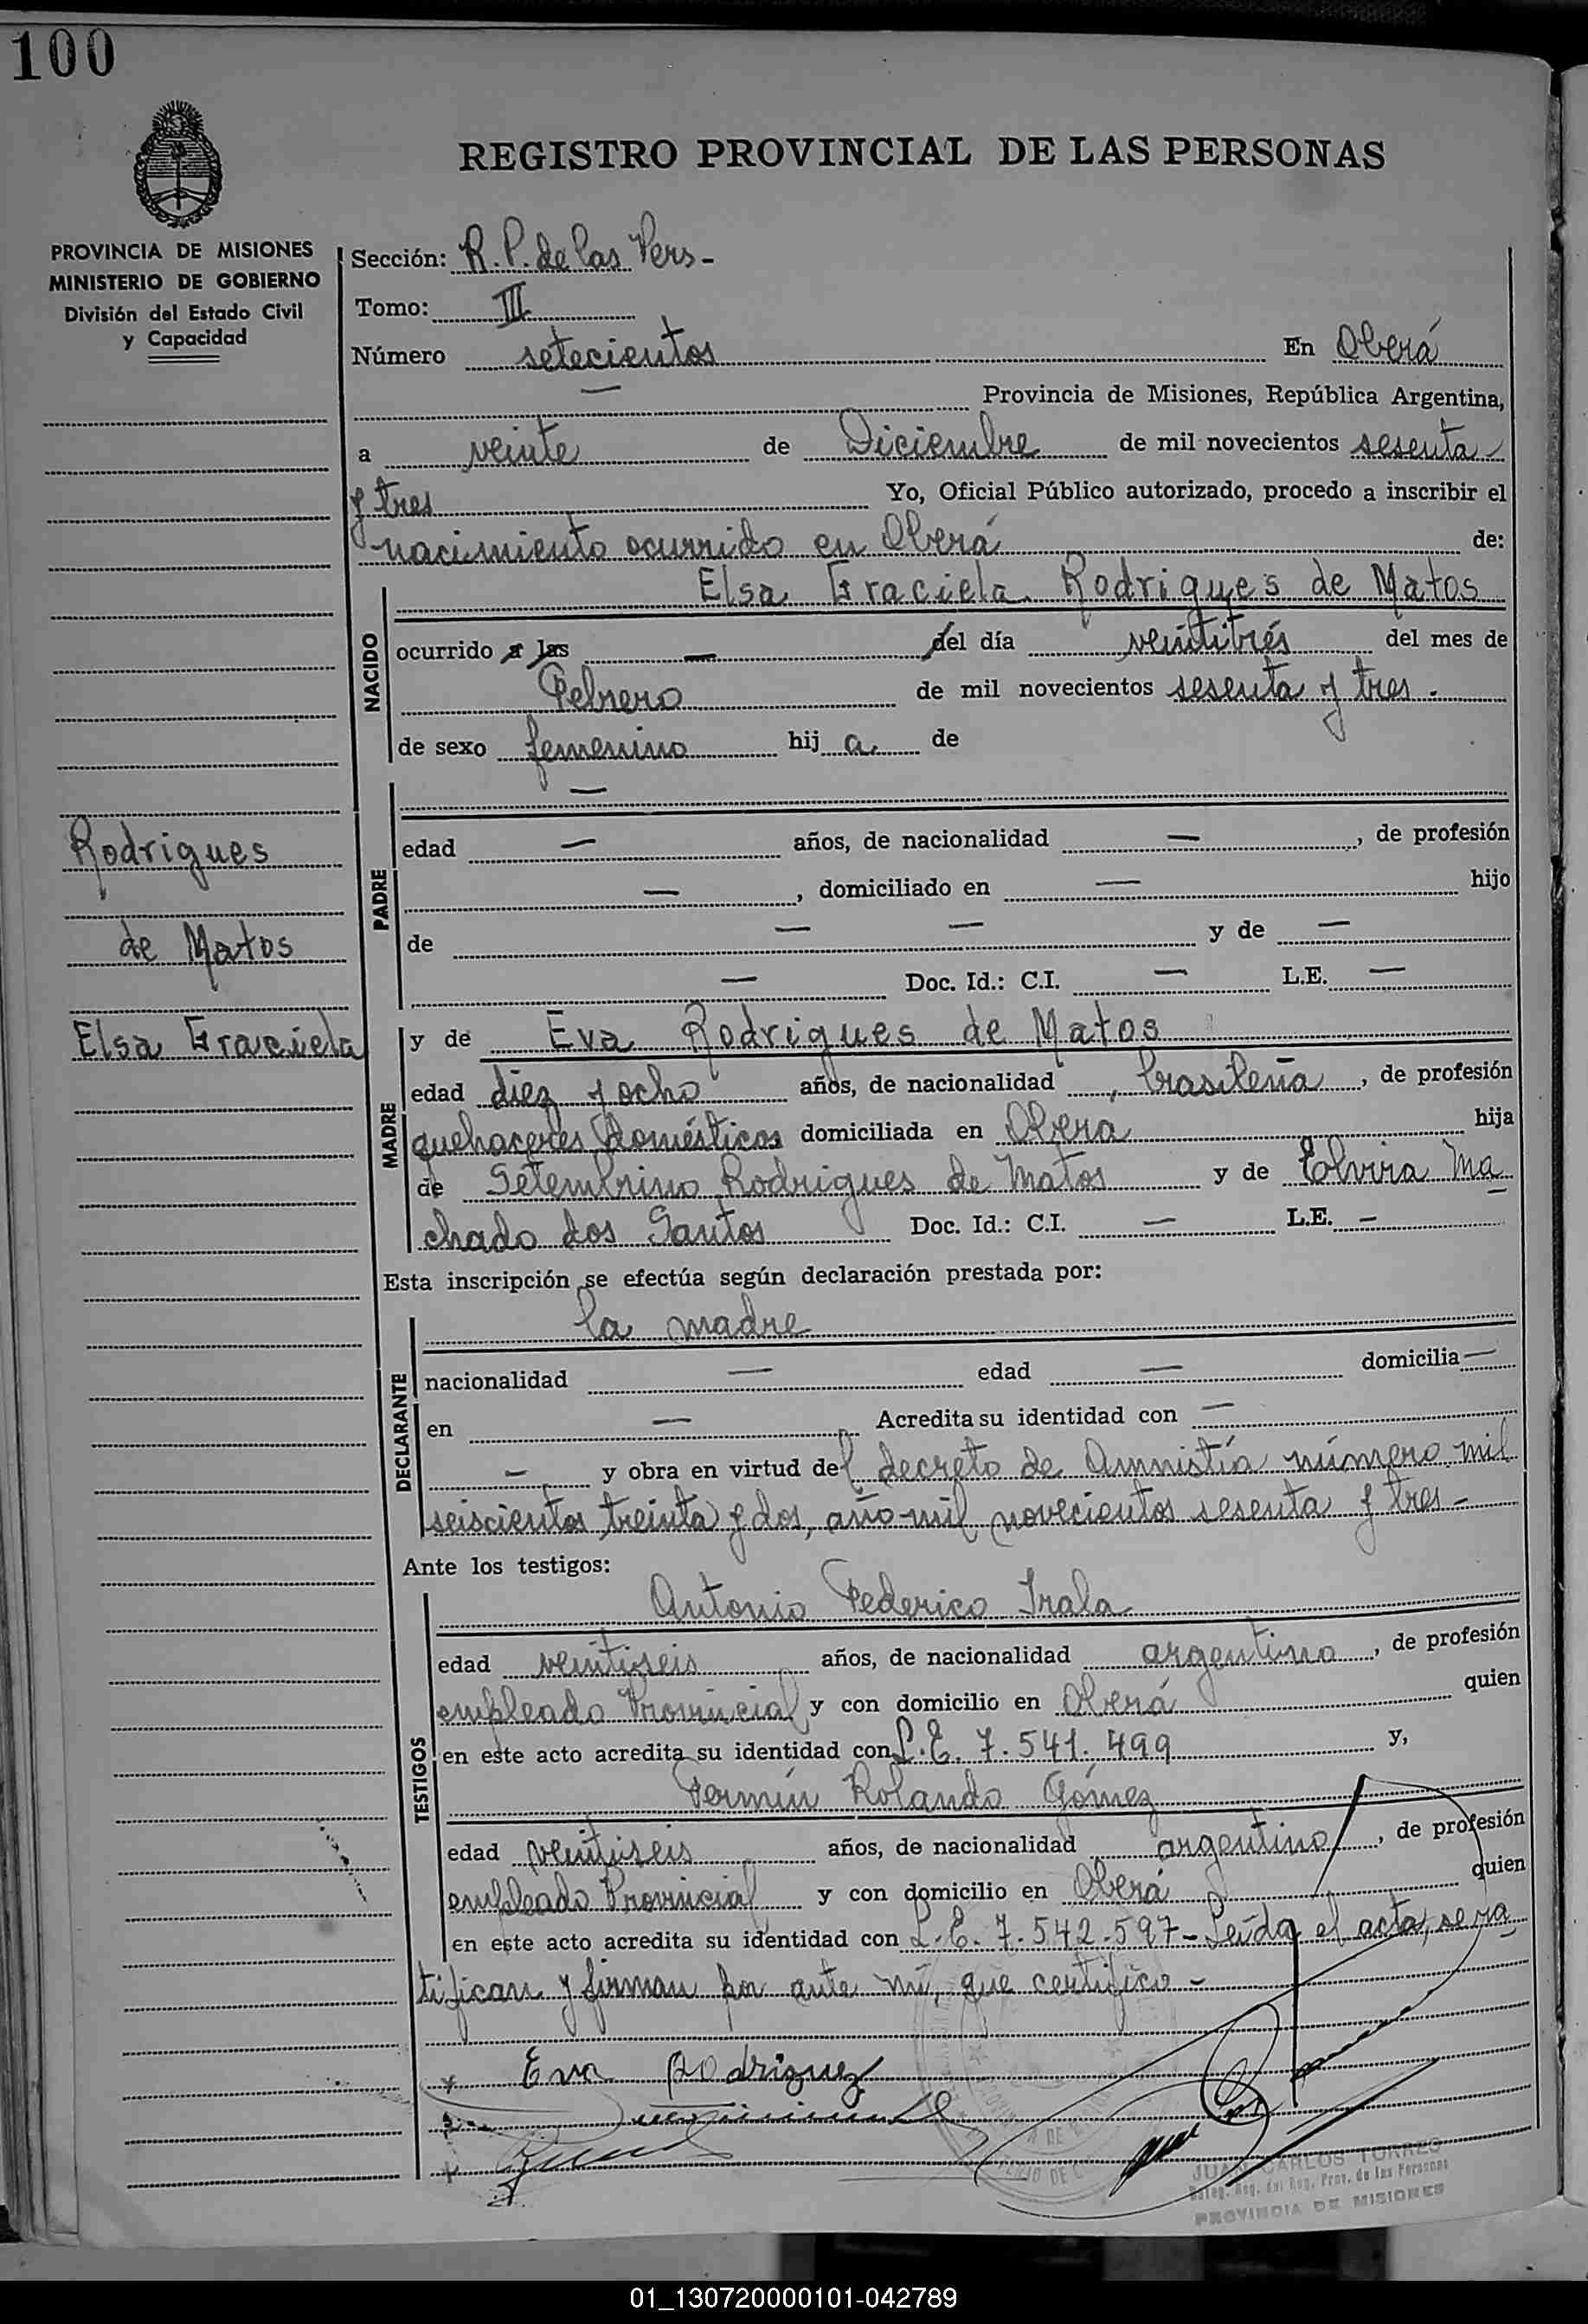 100
REGISTRO PROVINCIAL DE LAS PERSONAS
PROVINCIA DE MISIONES
MINISTERIO DE GOBIERNO
División del Estado Civil
y Capacidad
Sección: R. P. de las Pers -
Tomo: III
Número setecientos En Oberá
— Provincia de Misiones, República Argentina,
a veinte de Diciembre de mil novecientos sesenta
y tres Yo, Oficial Público autorizado, procedo a inscribir el
nacimiento ocurrido en Oberá de:
NACIDO
Elsa Graciela Rodrigues de Matos
ocurrido a las — del día veintitrés del mes de
Febrero de mil novecientos sesenta y tres.
de sexo femenino hij a de
Rodrigues
de Matos
Elsa Graciela
PADRE
—
edad — años, de nacionalidad —, de profesión
—, domiciliado en — hijo
de — — y de —
— Doc. Id.: C.I. — L.E. —
MADRE
y de Eva Rodrigues de Matos
edad diez y ocho años, de nacionalidad brasileña, de profesión
quehaceres domésticos domiciliada en Oberá hija
de Setembrino Rodrigues de Matos y de Elvira Ma
chado dos Santos Doc. Id.: C.I. — L.E. —
Esta inscripción se efectúa según declaración prestada por:
DECLARANTE
la madre
nacionalidad — edad — domicilia —
en — Acredita su identidad con —
— y obra en virtud del decreto de Amnistía número mil
seiscientos treinta y dos, año mil novecientos sesenta y tres -
Ante los testigos:
TESTIGOS
Antonio Federico Irala
edad veintiseis años, de nacionalidad argentino, de profesión
empleado Provincial y con domicilio en Oberá quien
en este acto acredita su identidad con L. E. 7.541.499 y,
Fermín Rolando Gómez
edad veintiseis años, de nacionalidad argentino, de profesión
empleado Provincial y con domicilio en Oberá quien
en este acto acredita su identidad con L. E. 7.542.597 - Leída el acta, se ra
tifican y firman por ante mí, que certifico -
Eva Rodriguez
JUAN CARLOS TORRES
Deleg. Reg. del Reg. Prov. de las Personas
PROVINCIA DE MISIONES
01_130720000101-042789